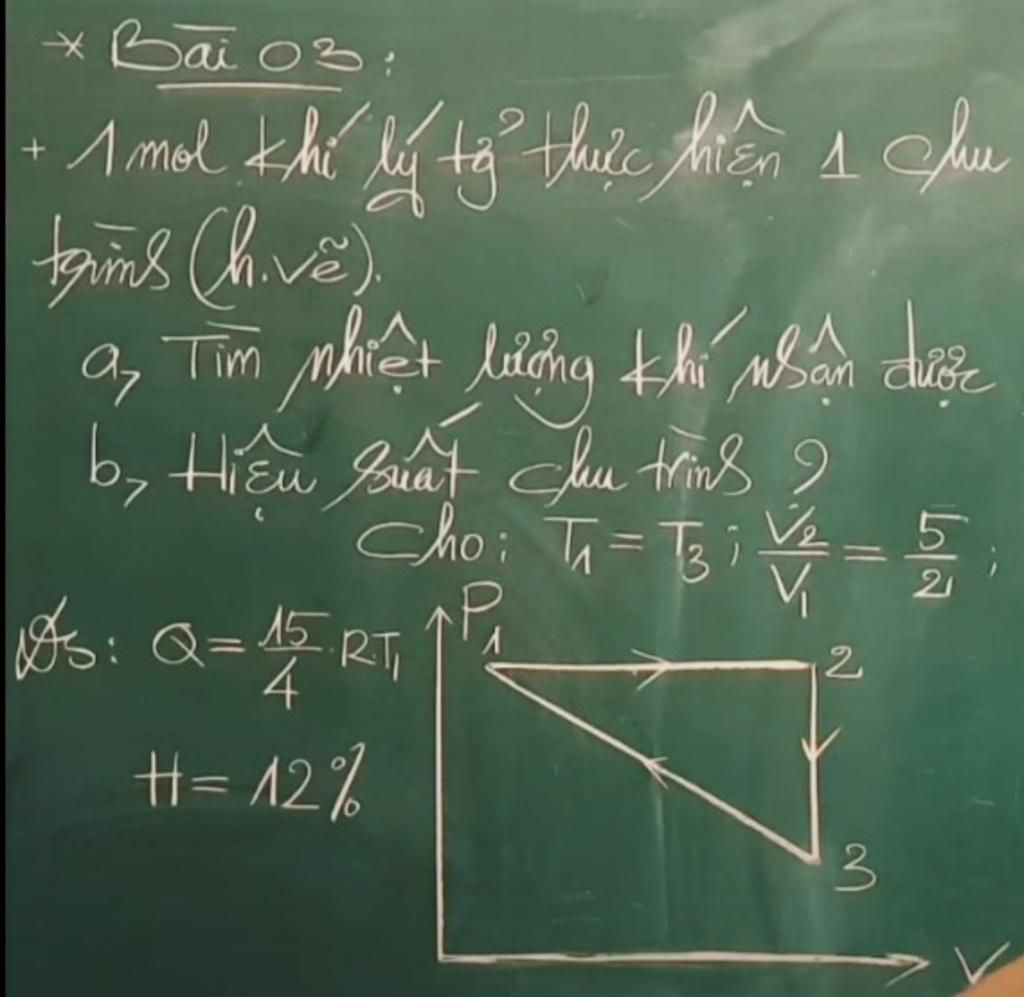 * Bài 03:
+ 1 mol khí lý tg² thực hiện 1 chu
trình (h.vẽ).
a, Tìm nhiệt lượng khí nhận được
b, Hiệu suất chu trình ?
Cho: T₁ = T₃; V₂/V₁ = 5/2;
Đs: Q = 15/4 . R.T₁
H = 12%
P
1
2
3
V